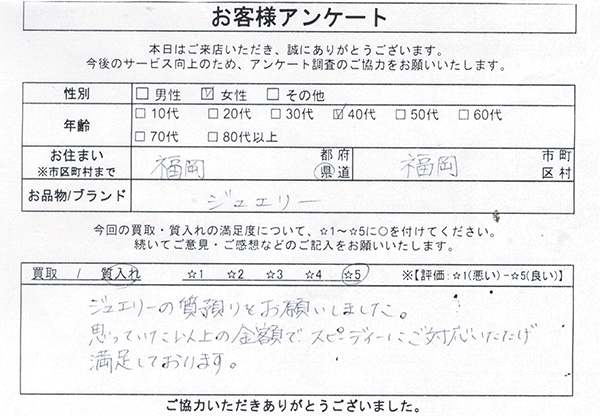 お客様アンケート
本日はご来店いただき、誠にありがとうございます。
今後のサービス向上のため、アンケート調査のご協力をお願いいたします。
性別 □ 男性 ☑ 女性 □ その他
年齢 □ 10代 □ 20代 □ 30代 ☑ 40代 □ 50代 □ 60代
□ 70代 □ 80代以上
お住まい ※市区町村まで 福岡 都 府 県 道 福岡 市 町 区 村
お品物/ブランド ジュエリー
今回の買取・質入れの満足度について、☆1～☆5に○を付けてください。
続いてご意見・ご感想などのご記入をお願いいたします。
買取 / 質入れ ☆1 ☆2 ☆3 ☆4 ☆5 ※【評価:☆1(悪い)-☆5(良い)】
ジュエリーの質預りをお願いしました。
思っていた以上の金額で、スピーディーにご対応いただけ
満足しております。
ご協力いただきありがとうございました。